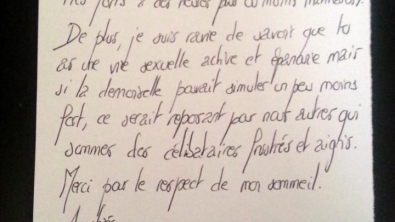 De plus, je suis ravie de savoir que tu
as une vie sexuelle active et épanouie mais
si la demoiselle pouvait simuler un peu moins
fort, ce serait reposant pour nous autres qui
sommes des célibataires frustrés et aigris.
Merci par le respect de mon sommeil.